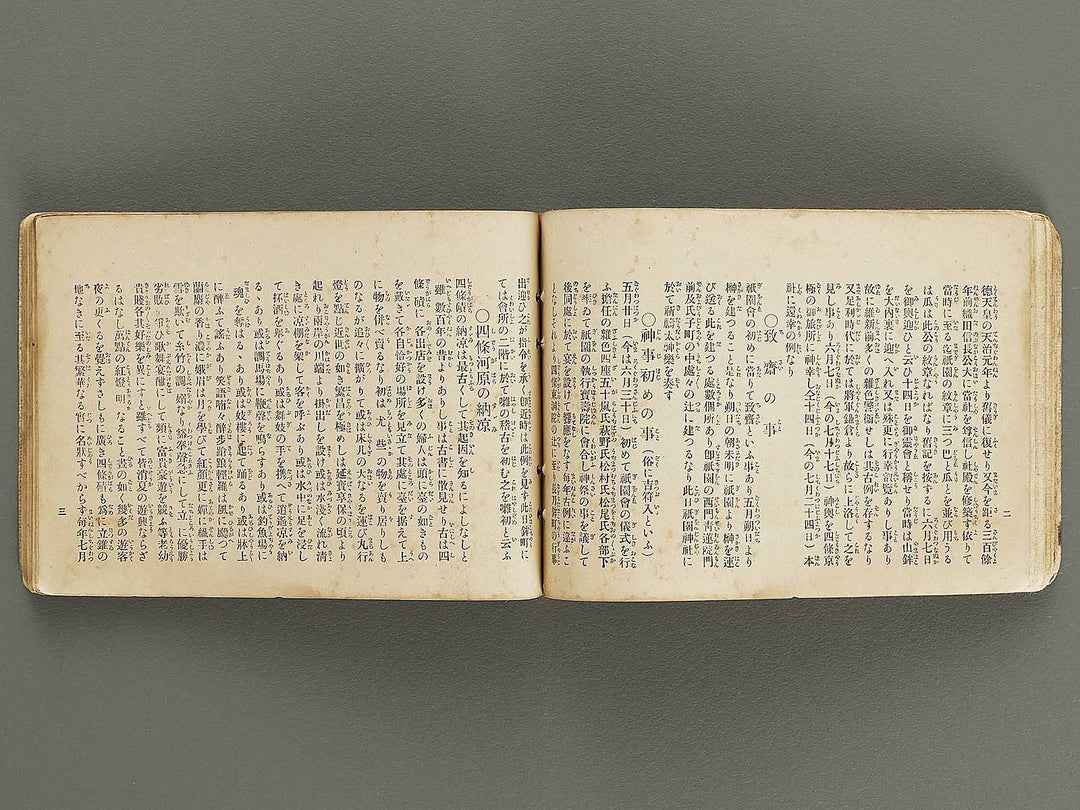 二
德天皇の天治元年より舊儀に復せり又今を距る三百餘
年前織田信長公大に當社を尊信し社殿を修築す依りて
當時に至る迄祇園の紋章に三つ巴と瓜とを並び用うる
は瓜は信長公の紋章なればなり舊記を按ずるに六月七日
を御輿迎ひと云ひ十四日を御靈會と稱せり當時は山鉾
を大内裏に迎へ入れ又は殊更に行幸叡覽ありし事あり
故に維新前多くの雜色警衞せしは其古例を存するなり
又足利時代に於ては將軍鎌倉より故らに上洛して之を
見し事あり六月七日(今の七月十七日) 神輿を四條京
極の御旅所に神幸し仝十四日(今の七月二十四日)本
社に還幸の例なり
○致齋の事
祇園會の初めに當りて致齋といふ事あり五月朔日より
榊を建つること是なり朔日の朝未明に祇園より榊を運
び送る此を建つる處數個所あり卽祇園の西門靑蓮院門
前及氏子町の中處々の辻に建つるなり此日祇園神社に
於て祈禱太神樂を奏す
○神事初めの事(俗に吉符入といふ)
五月廿日(今は六月三十日)初めて祇園會の儀式を行
ふ擔任の雜色四座五十嵐氏荻野氏松村氏松尾氏各部下
を率ゐて祇園の執行寶壽院に會合し神祭の事を議して
後同處に於て宴を設けて
四條河原の納凉
出迎ひ之が指令を承く
ては會所の二階に於て囃の稽古を初む之を囃初と云ふ
○四條河原の納凉
四條磧の納凉は最古くして其起因を知るによしなしと
雖數百年の昔よりありし事は古書に散見せり古は四
條磧に各出店を設け多の婦人は頭に筥の如きもの
を戴きて各自恰好の場所を見立て其處に臺を据えて上
に物を倂べ賣るなり初は尤些の物を賣り居りしも
のなるが追々に擴がりて或は床几の大なるを運び丸行
燈を點じ近時の如き繁昌を極めしは延寶享保の頃より
起れり兩岸の川端より掛出しを設け或は水淺く流れ淸
き處に凉棚を架して客を呼ぶあり或は水中に足を浸し
て杯酒を聚くるあり或は舞妓の手を携へて逍遙凉を納
るゝあり或は調馬場に鞭を鳴らすあり或は釣魚場に
魂を奪はるゝあり或は妓樓に起て踊るあり或は牀上
に醉ふて謠ふあり笑語喃々醉步蹌踉輕羅は風に颺つて
蘭麝の香り濃に娥眉は月を學びて紅顏更に嬋に纎手は
劣敗を爭ひ歌舞宴醼にして頻に富貴豪遊を競ふ等老幼
貴賤各其好樂を異にすと雖すべて皆消夏の遊興ならざ
るはなし萬點の紅燈明なること晝の如く幾多の遊客
夜の更くるを覺えずさしもに廣き四條磧も爲に立錐の
地なきに至る其繁華なる實に名狀すべからず每年七月
三